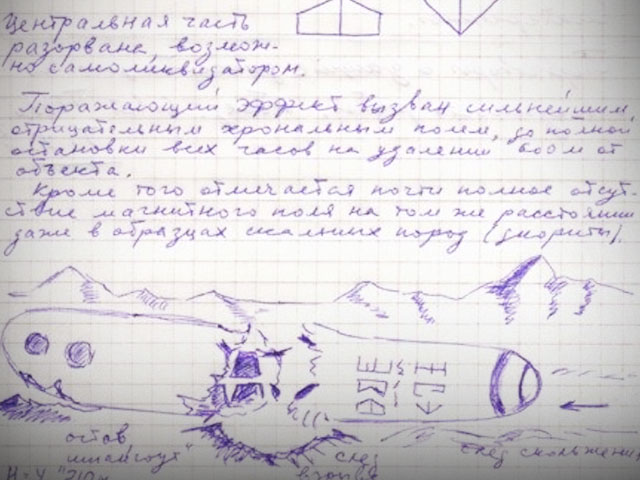 Центральная часть
разорвана, возмож-
но самоликвизатором.
Поражающий эффект вызван сильнейшим,
отрицательным хрональным полем, до полной
остановки всех часов на удалении 600 м от
объекта.
Кроме того отмечается почти полное отсут-
ствие магнитного поля на том же расстоянии
даже в образцах скальных пород (диориты).
остов,
"шпангоут"
след
взрыва
след скольжения